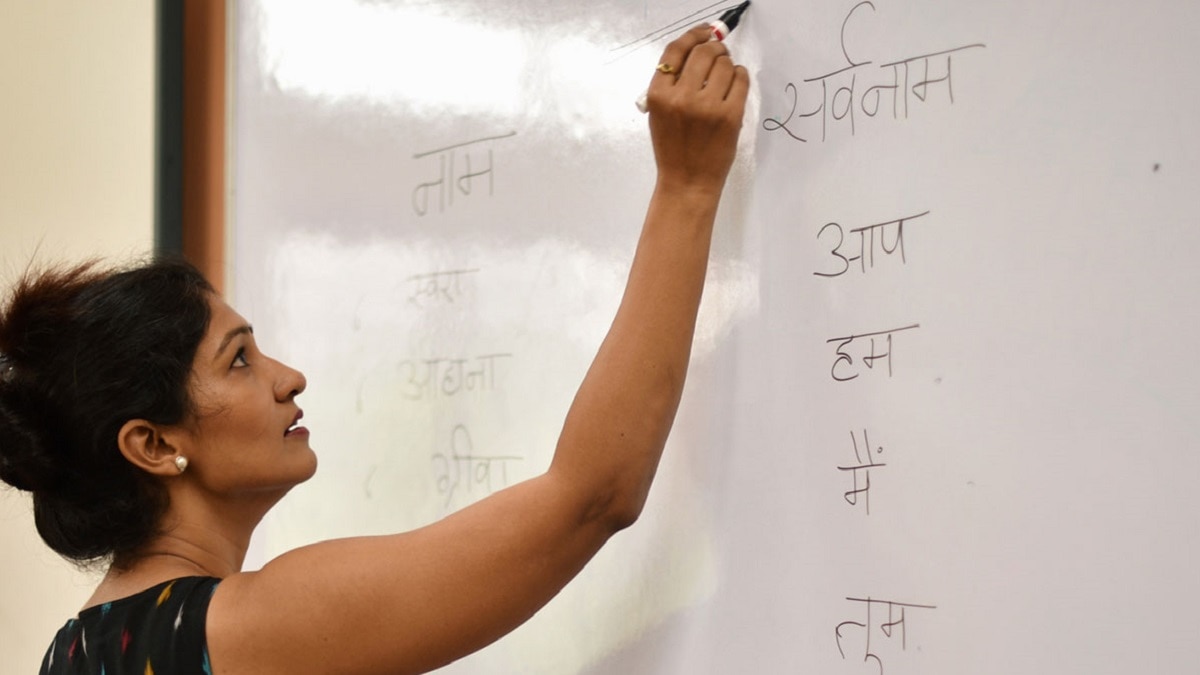 नाम
स्वरा
आहाना
ग्रीवा
सर्वनाम
आप
हम
मैं
तुम